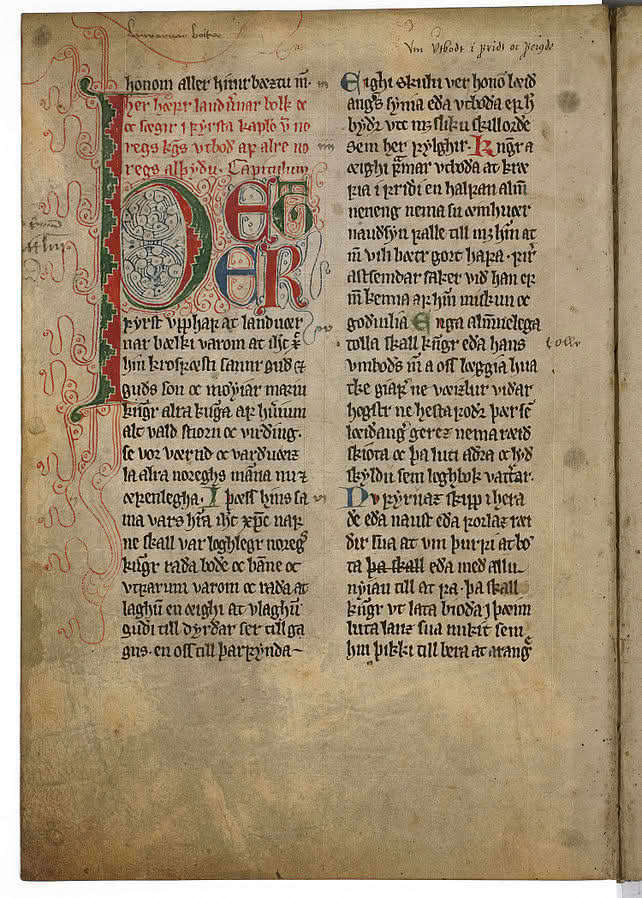 Vm Vtbodt i fridt oc
honom aller hinir bœztu m̄.
her hæfr landvarnar bolk oc
oc sægir i fyrsta kaplo v̄ no
regs kgs vtbod af alre no
regs alþydu. Capitulum
ÞEGER
fyrst vpphaf at landuœr
nar bœlki varom at ihc x̄
hin krosfæsti sannr gud œ
guds son oc møyiar mariu
kngr allra kunga af hinum
alt vald stiorn oc virding.
se vor vœrnd oc varduœiz
la alra noreghs mana nu œ
œfenlegha. I þæss hins sa
ma vars hra ihc xpc naf
ne skall var loghlegr noregs
kngr rada bode oc banne oc
vtfarum varom oc rada at
laghum en œighi at vlaghum
gudi till dyrdar ser till ga
gns. en oss till þarfynda
Eighi skulu ver hono leid
angs syma eda vtboda er h
bydr vte mz sliku skillorde
sem her fylghir. Kngr a
œighi framar vtboda at kre
fia i fridi en halfan alm
neneng nema su œmhuer
naudsyn falle till mz hin at
m vili bœtr gort hafa. fir
allsemdar saker vid han er
m kenna af hm miskun oc
goduilia Enga almnelega
tolla skall kngr eda hans
vmbods m a oss leggia hua
rke giaf ne vœizlur vidar
hogstr ne hesta fodr þœr se
leidangs gerez nema reid
skiota oc þa luti adra oc lyd
skyldu sem loghbok vattar.
Nu fyrnaz skipp i hera
de eda naust eda forlaz rei
dir sua at vm þurfi at bo
ta þa skall eda med allu
nyian till at fa. þa skall
kngr vt lata bioda j þœim
luta lanz sua mikit sem
hm þikki till bera at arang
tolle